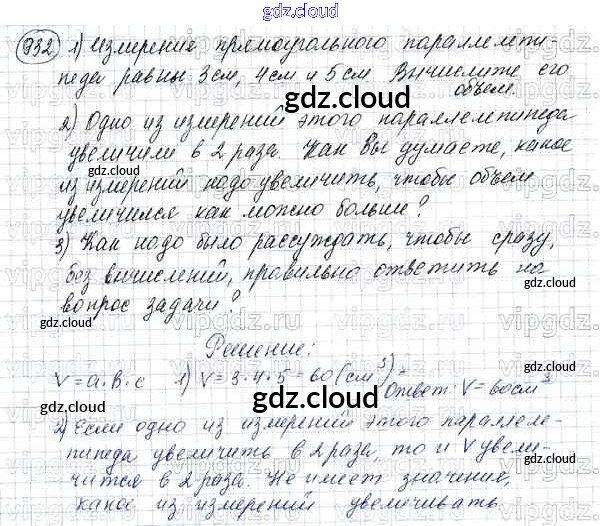 gdz.cloud
932 1) Измерения прямоугольного параллелепи-
педа равны 3 см, 4 см и 5 см. Вычислите его
объем.
gdz.cloud
2) Одно из измерений этого параллелепипеда
gdz.cloud
увеличили в 2 раза. Как Вы думаете, какое
из измерений надо увеличить, чтобы объем
увеличился как можно больше?
3) Как надо было рассуждать, чтобы сразу,
без вычислений, правильно ответить на
gdz.cloud
вопрос задачи?
gdz.cloud
Решение:
V = a·b·c 1) V = 3·4·5 = 60 (см³) Ответ: V = 60 см³
gdz.cloud
gdz.cloud
2) Если одно из измерений этого параллеле-
пипеда увеличить в 2 раза, то и V увели-
чится в 2 раза. Не имеет значение,
gdz.cloud
gdz.cloud
какое из измерений увеличивать.